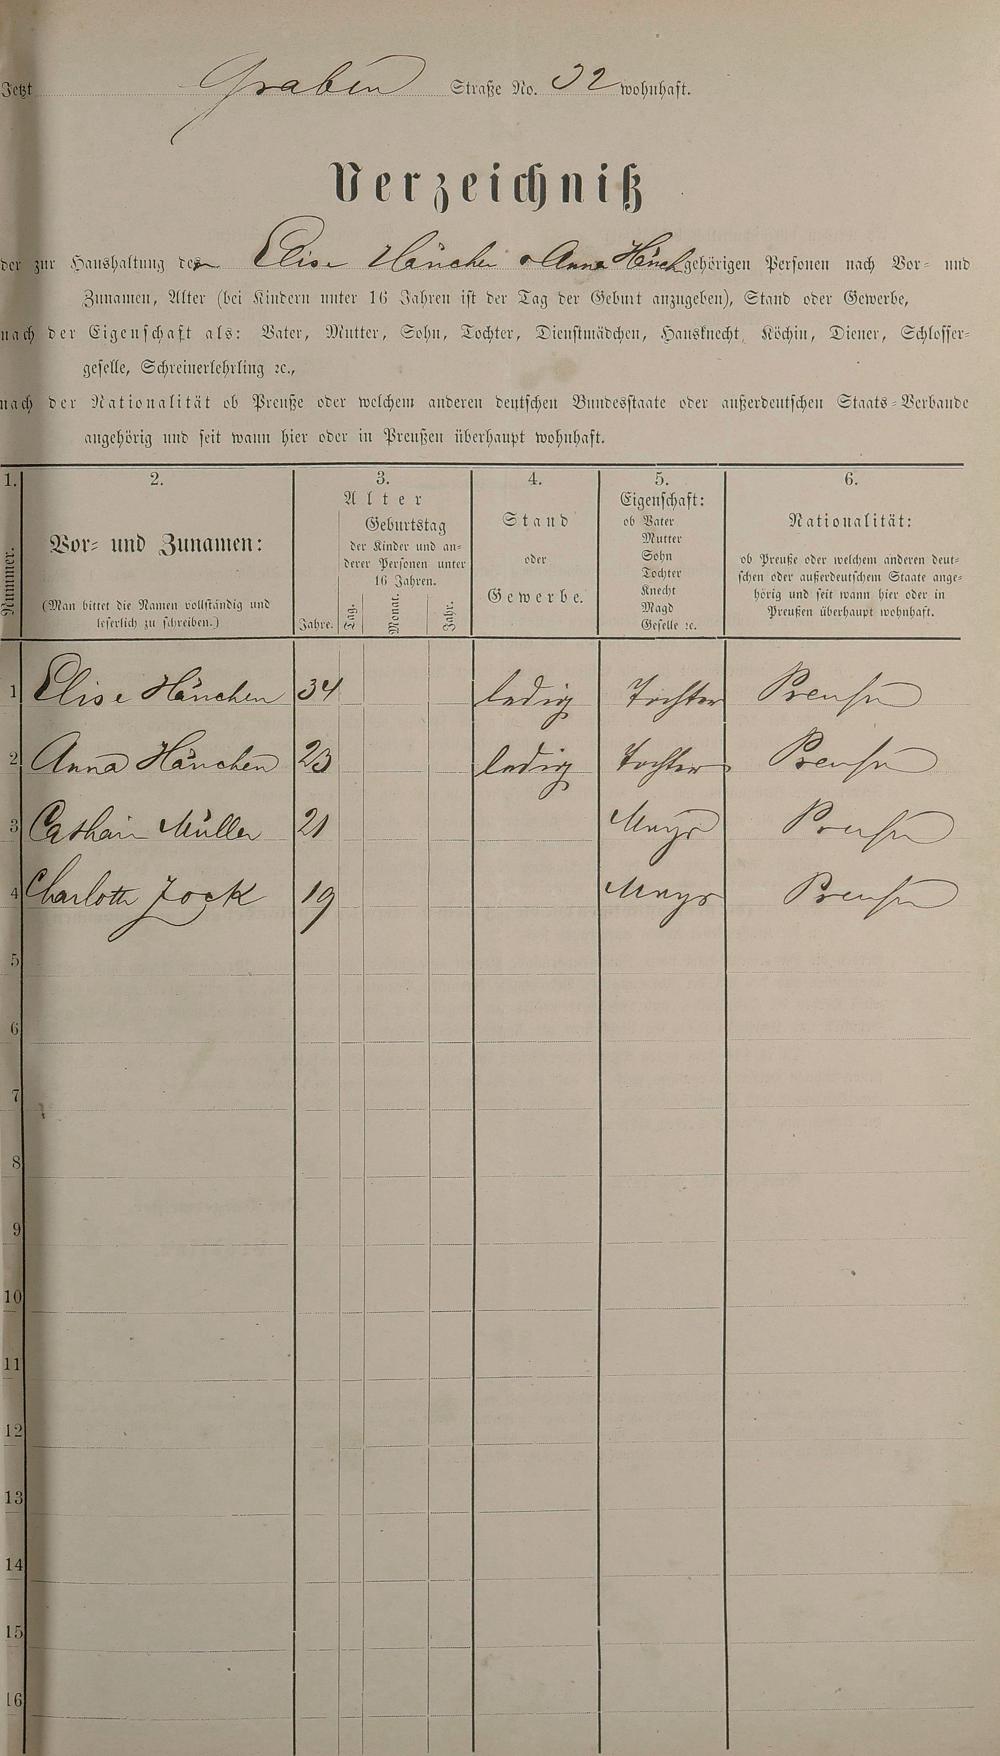 Jetzt Graben Straße No. 32 wohnhaft.
Verzeichniß
der zur Haushaltung der Elise Hänchen & Anna Hänch gehörigen Personen nach Vor- und
Zunamen, Alter (bei Kindern unter 16 Jahren ist der Tag der Geburt anzugeben), Stand oder Gewerbe,
nach der Eigenschaft als: Vater, Mutter, Sohn, Tochter, Dienstmädchen, Hausknecht, Köchin, Diener, Schlosser-
geselle, Schreinerlehrling ꝛc.,
nach der Nationalität ob Preuße oder welchem anderen deutschen Bundesstaate oder außerdeutschen Staats-Verbande
angehörig und seit wann hier oder in Preußen überhaupt wohnhaft.
1. 2. 3. 4. 5. 6.
Nummer.
Vor- und Zunamen:
(Man bittet die Namen vollständig und
leserlich zu schreiben.)
Alter
Jahre.
Geburtstag
der Kinder und an-
derer Personen unter
16 Jahren.
Tag. Monat. Jahr.
Stand
oder
Gewerbe.
Eigenschaft:
ob Vater
Mutter
Sohn
Tochter
Knecht
Magd
Geselle ꝛc.
Nationalität:
ob Preuße oder welchem anderen deut-
schen oder außerdeutschem Staate ange-
hörig und seit wann hier oder in
Preußen überhaupt wohnhaft.
1 Elise Hänchen 34 ledig Tochter Preußen
2 Anna Hänchen 23 ledig Tochter Preußen
3 Cathari Müller 21 Magd Preußen
4 Charlotte Jock 19 Magd Preußen
5
6
7
8
9
10
11
12
13
14
15
16